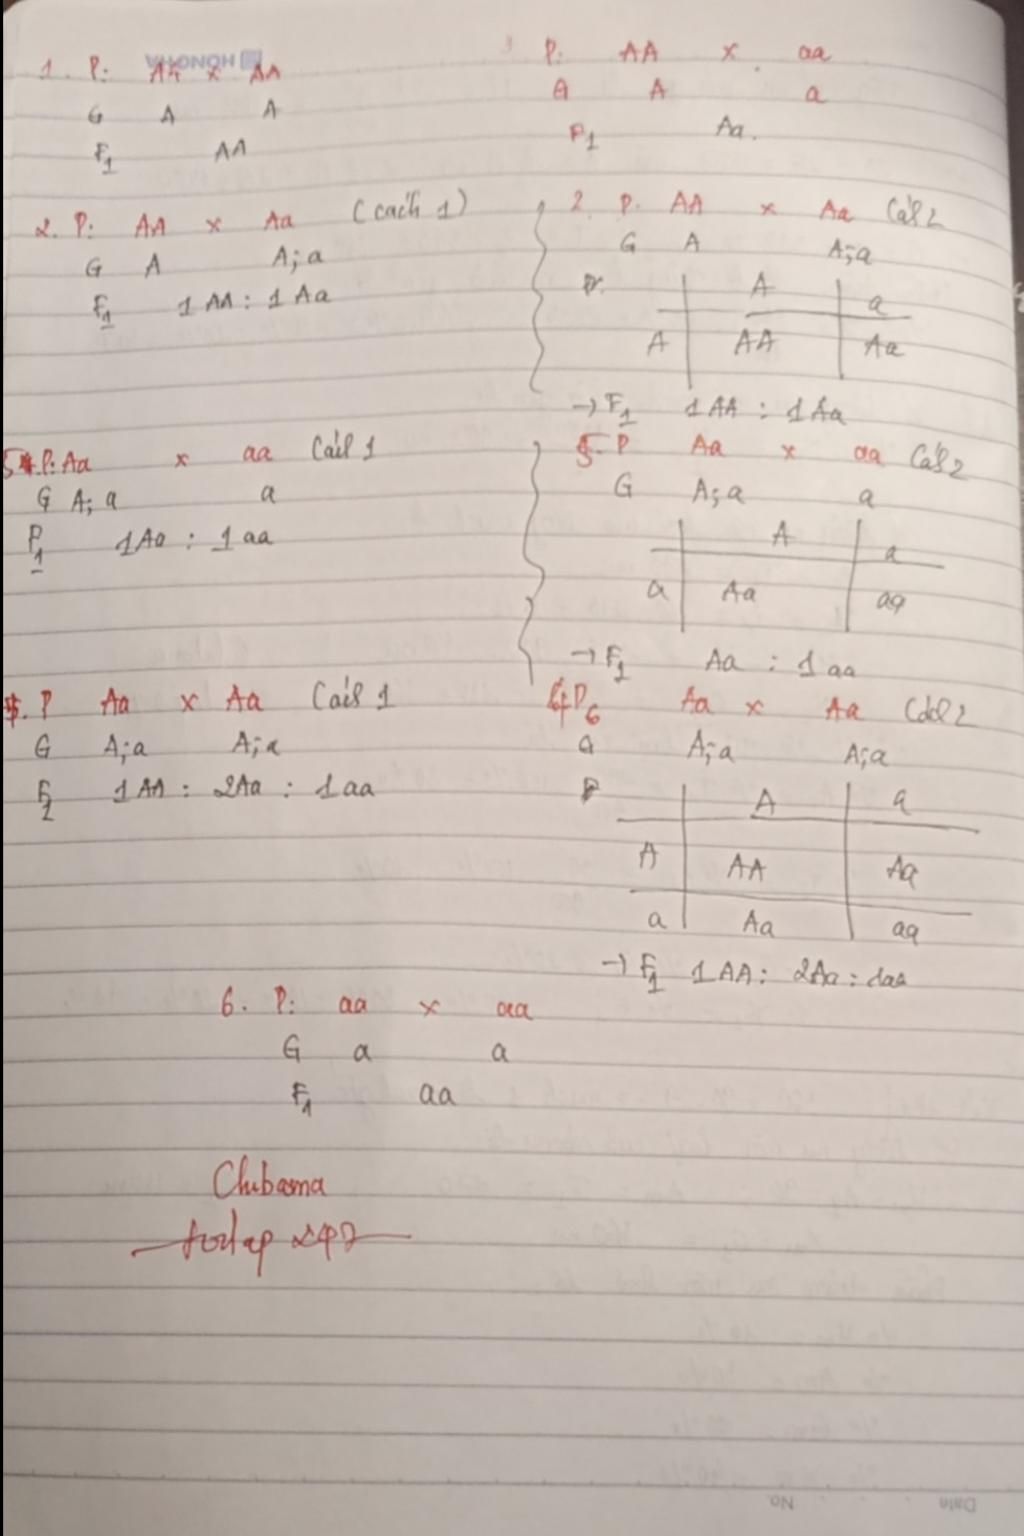 HONOHA
1. P: AA x AA
G A A
F1 AA
3 P: AA x aa
G A a
F1 Aa.
2. P: AA x Aa (cách 1)
G A A; a
F1 1 AA : 1 Aa
2. P. AA x Aa Cách 2
G A A; a
A a
A AA Aa
→ F1 1 AA : 1 Aa
5. P: Aa x aa Cách 1
G A; a a
F1 1 Aa : 1 aa
5. P Aa x aa Cách 2
G A; a a
A a
a Aa aa
→ F1 Aa : 1 aa
P Aa x Aa Cách 1
G A; a A; a
1 AA : 2Aa : 1 aa
P Aa x Aa Cách 2
G A; a A; a
A a
A AA Aa
a Aa aa
→ F1 1 AA : 2Aa : 1aa
6. P: aa x aa
G a a
F1 aa
Date No.